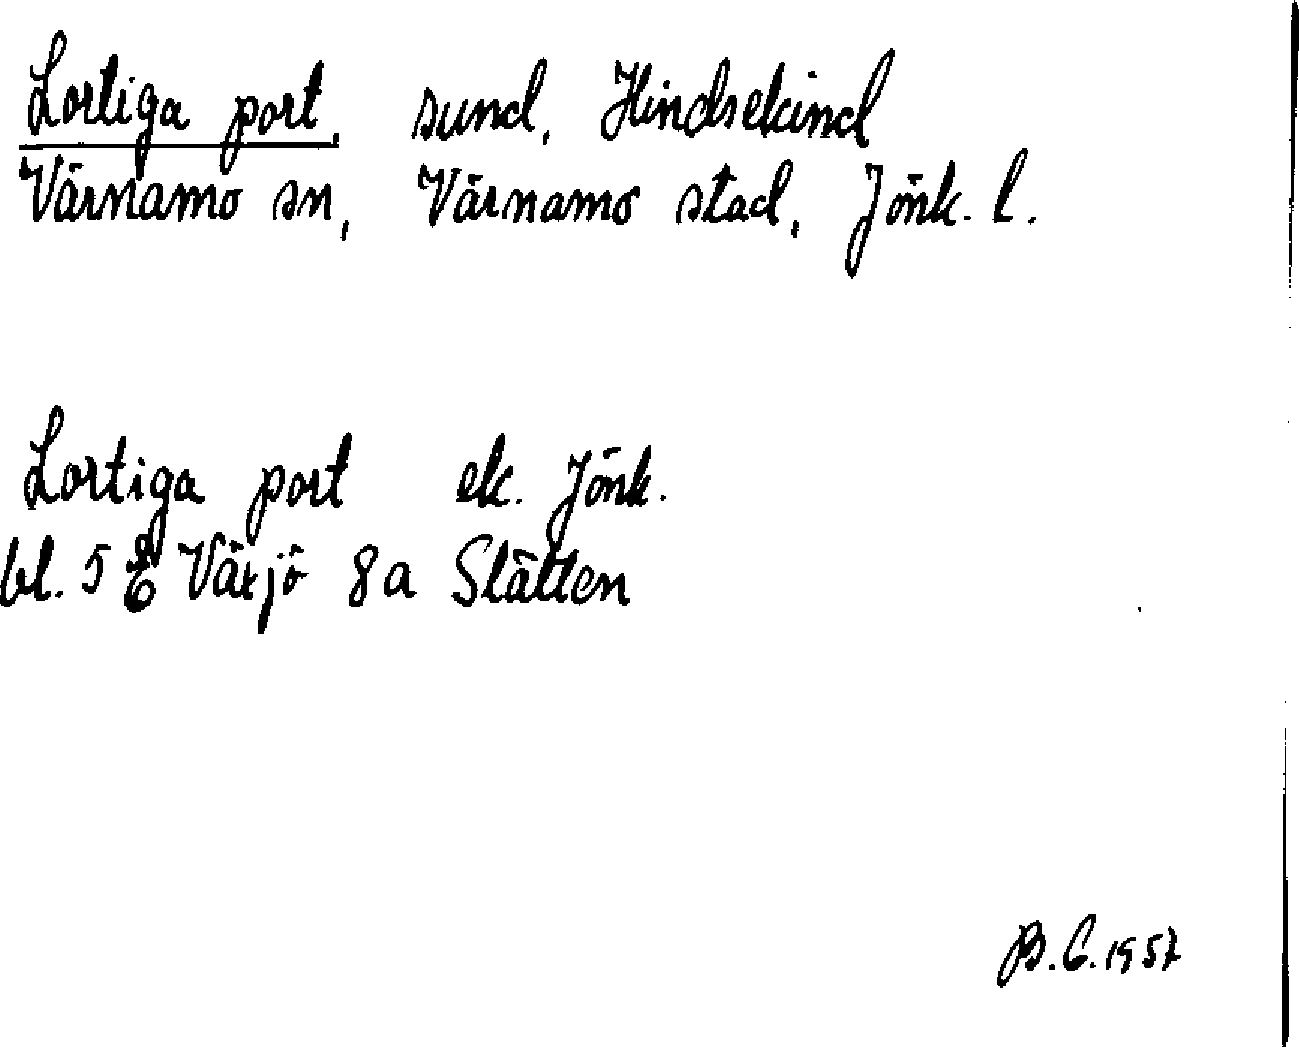 Lortiga port, sund, Hindsekind
Värnamo sn, Värnamo stad, Jönk. l.
Lortiga port ek. Jönk.
bl. 5 E Växjö 8a Slätten
B.E. 1957